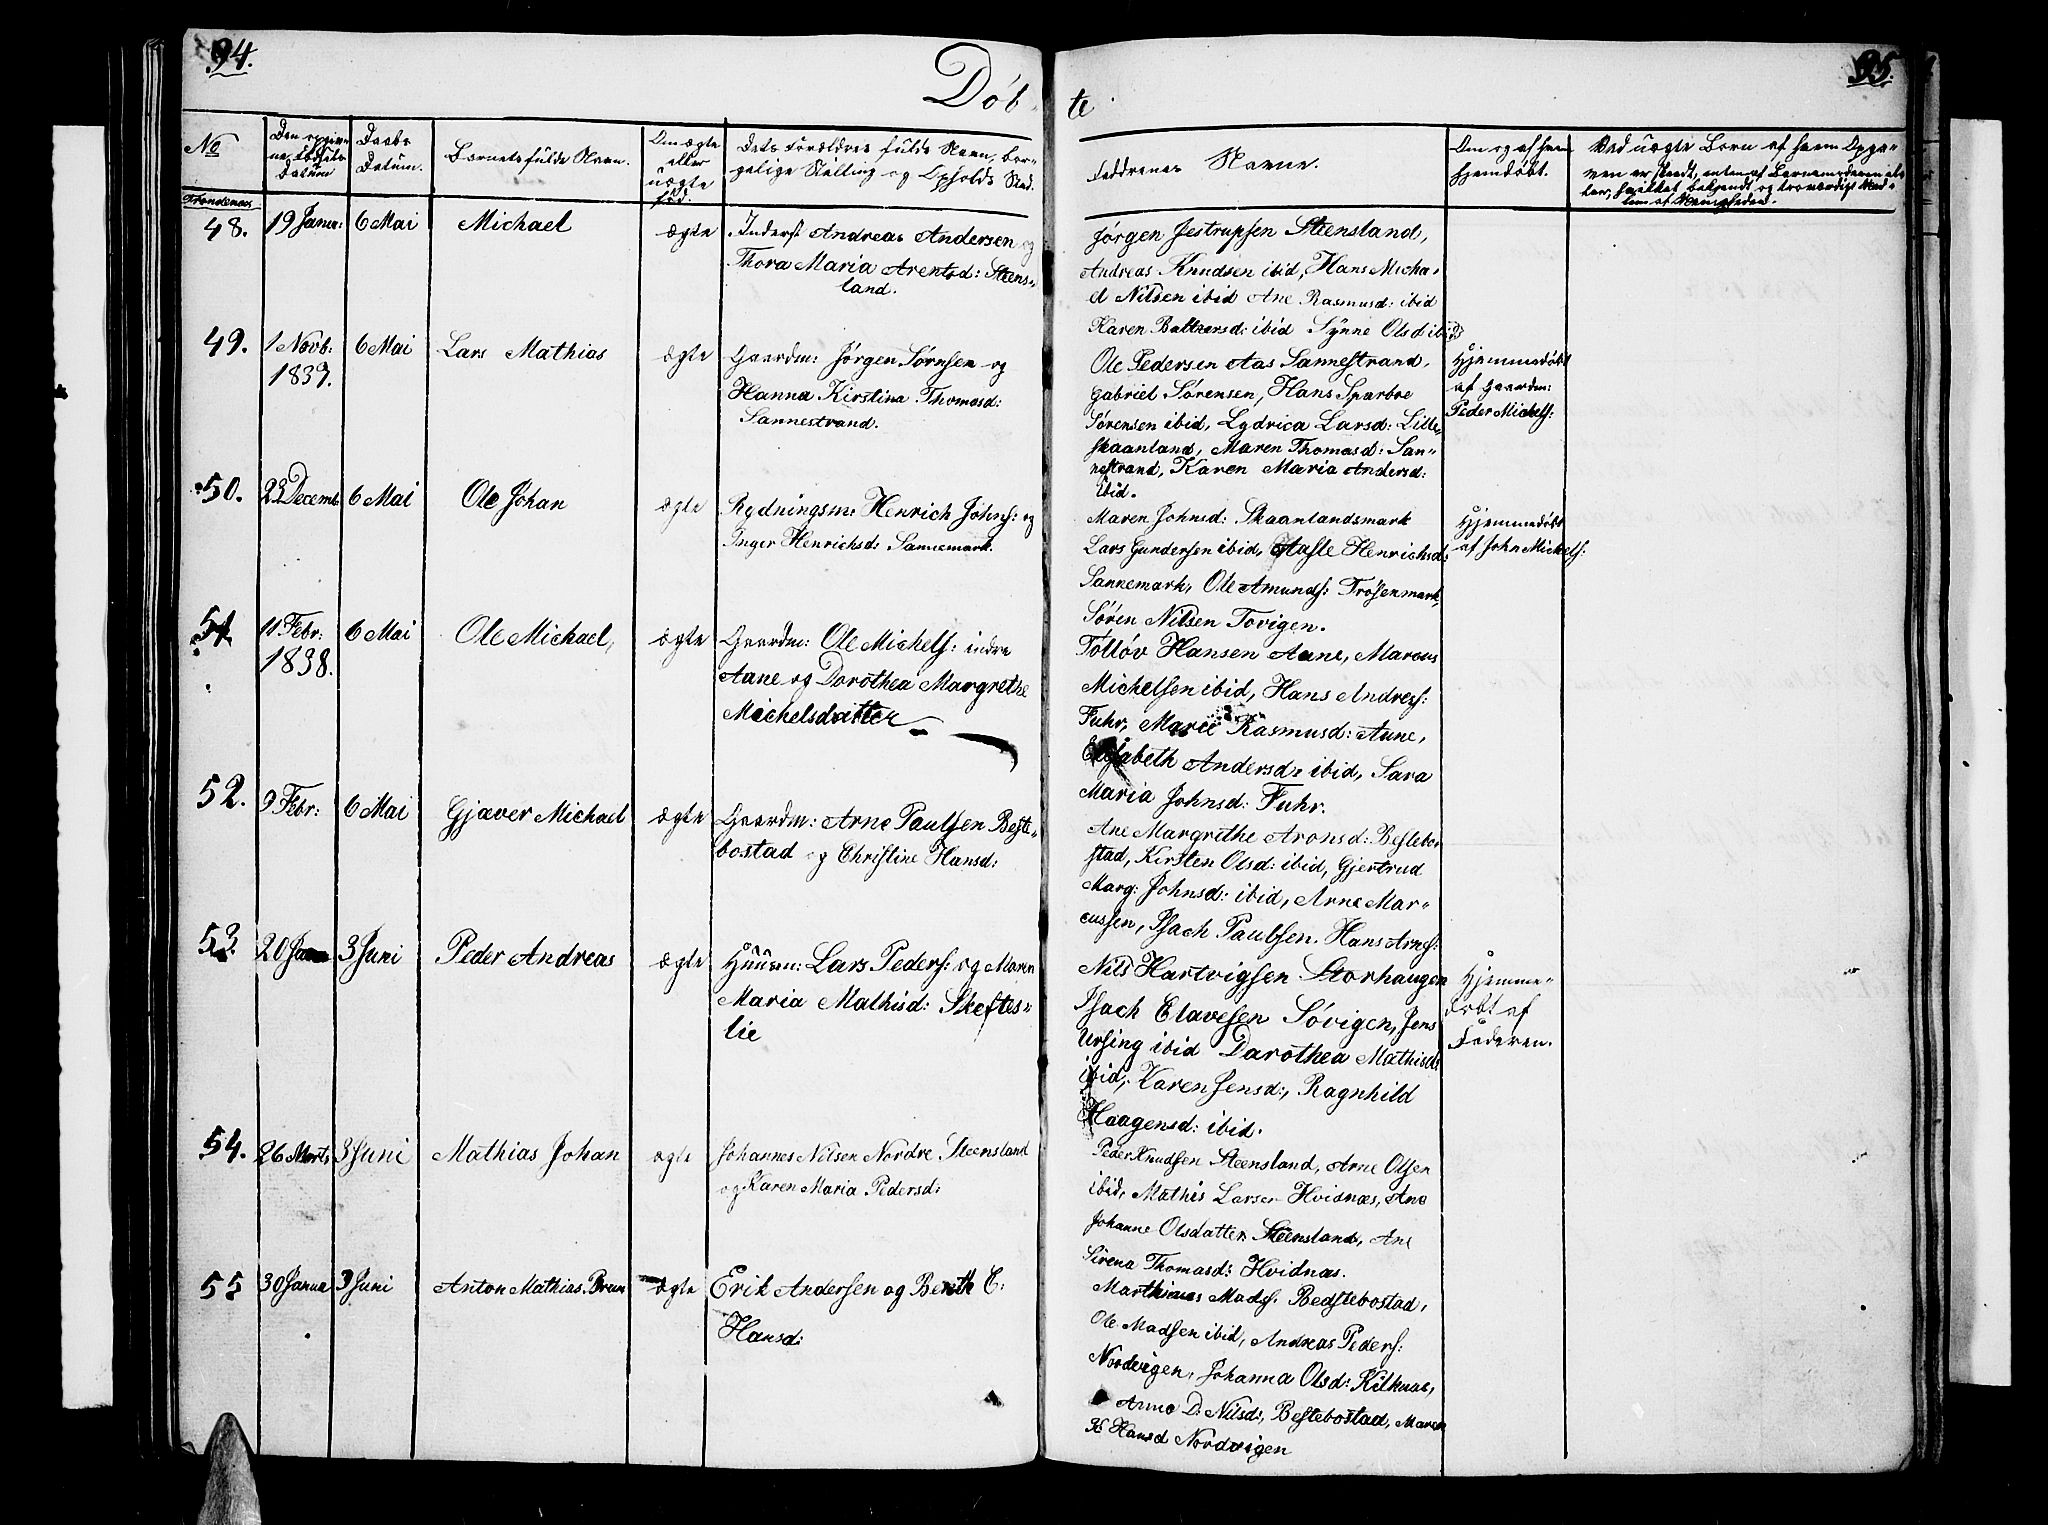 94.
95.
Döb-
te
No
Den opgiv-
ne Födsels
Datum
Daabs
Datum.
Barnets fulde Navn.
Om ægte
eller
uægte
föd.
Dets Forældres fulde Navn, bor-
gelige Stilling og Opholds Sted.
Faddrenes Navne.
Om og af hvem
hjemdöbt.
Ved uægte Börn af hvem Opga-
ven er skeedt, enten af Barnemoderen el-
ler, hvilket bekjendt og troværdigt Med-
lem af Menigheden.
Trondenæs
48.
19 Janu:
6 Mai
Michael
ægte
Inderst Andreas Andersen og
Thora Maria Arentsd: Steens-
land.
Jörgen Jestrupsen Steensland,
Andreas Knudsen ibid, Hans Micha-
el Nilsen ibid Ane Rasmusd: ibid
Karen Baltzersd: ibid Synne Olsd ibid
49.
1 Novb:
1837.
6 Mai
Lars Mathias
ægte
Gaardm: Jörgen Sörnsen og
Hanna Kirstina Thomasd:
Sannestrand.
Ole Pedersen Aas Sannestrand,
Gabriel Sörensen, Hans Sparboe
Sörensen ibid, Lydrica Larsd: Lille-
skaanland, Maren Thomasd: San-
nestrand, Karen Maria Andersd:
ibid.
Hjemmedöbt
af Gaardm:
Peder Michels:
50.
23 Decemb
6 Mai
Ole Johan
ægte
Rydningsm: Henrich Johns: og
Inger Henrichsd: Sannemark.
Maren Johnsd: Skaanlandsmark
Lars Gundersen ibid, Aasle Henrichsd:
Sannemark, Ole Amunds: Trösenmark,
Sören Nilsen Tovigen.
Hjemmedöbt
af John Michels:
51.
11 Febr:
1838.
6 Mai
Ole Michael,
ægte
Gaardm: Ole Michels: indre
Aane og Dorothea Margrethe
Michelsdatter
Tolløv Hansen Aane, Marcus
Michelsen ibid, Hans Anders:
Fuhr, Marie Rasmusd: Aune,
Elisabeth Andersd: ibid, Sara
Maria Johnsd: Fuhr.
52.
9 Febr:
6 Mai
Gjæver Michael
ægte
Gaardm: Arne Paulsen Beste-
bostad og Christine Hansd:
Ane Margrethe Aronsd: Bestebo-
stad, Kirsten Olsd: ibid, Gjertrud
Marg: Johnsd: ibid, Arne Mar-
cussen, Isach Paulsen. Hans Arns:
53.
20 Janu
3 Juni
Peder Andreas
ægte
Huusm: Lars Peders: og Maren
Maria Mathisd: Skeftes-
lie
Nils Hartvigsen Storhaugen
Isach Elavesen Sövigen, Jens
Ursing ibid Darothea Mathisd:
ibid, Karen Jensd:, Ragnhild
Haagensd: ibid.
Hjemme-
döbt af
Faderen.
54.
26 Marts
3 Juni
Mathias Johan
ægte
Johannes Nilsen Nordre Steensland
og Karen Maria Pedersd:
Peder Knudsen Steensland, Arne Olsen
ibid, Mathis Larsen Hvidnæs, Ane
Johanne Olsdatter Steensland, Ane
Sirena Thomasd: Hvidnæs.
55
30 Janua
3 Juni
Anton Mathias Bruun
ægte
Erik Andersen og Berith E:
Hansd:
Marthinus Mads: Bedstebostad,
Ole Madsen ibid, Andreas Peders:
Nordvigen, Johanna Olsd: Kilknæ,
Anna D: Nilsd:, Bestebostad, Maren
K Hansd Nordvigen